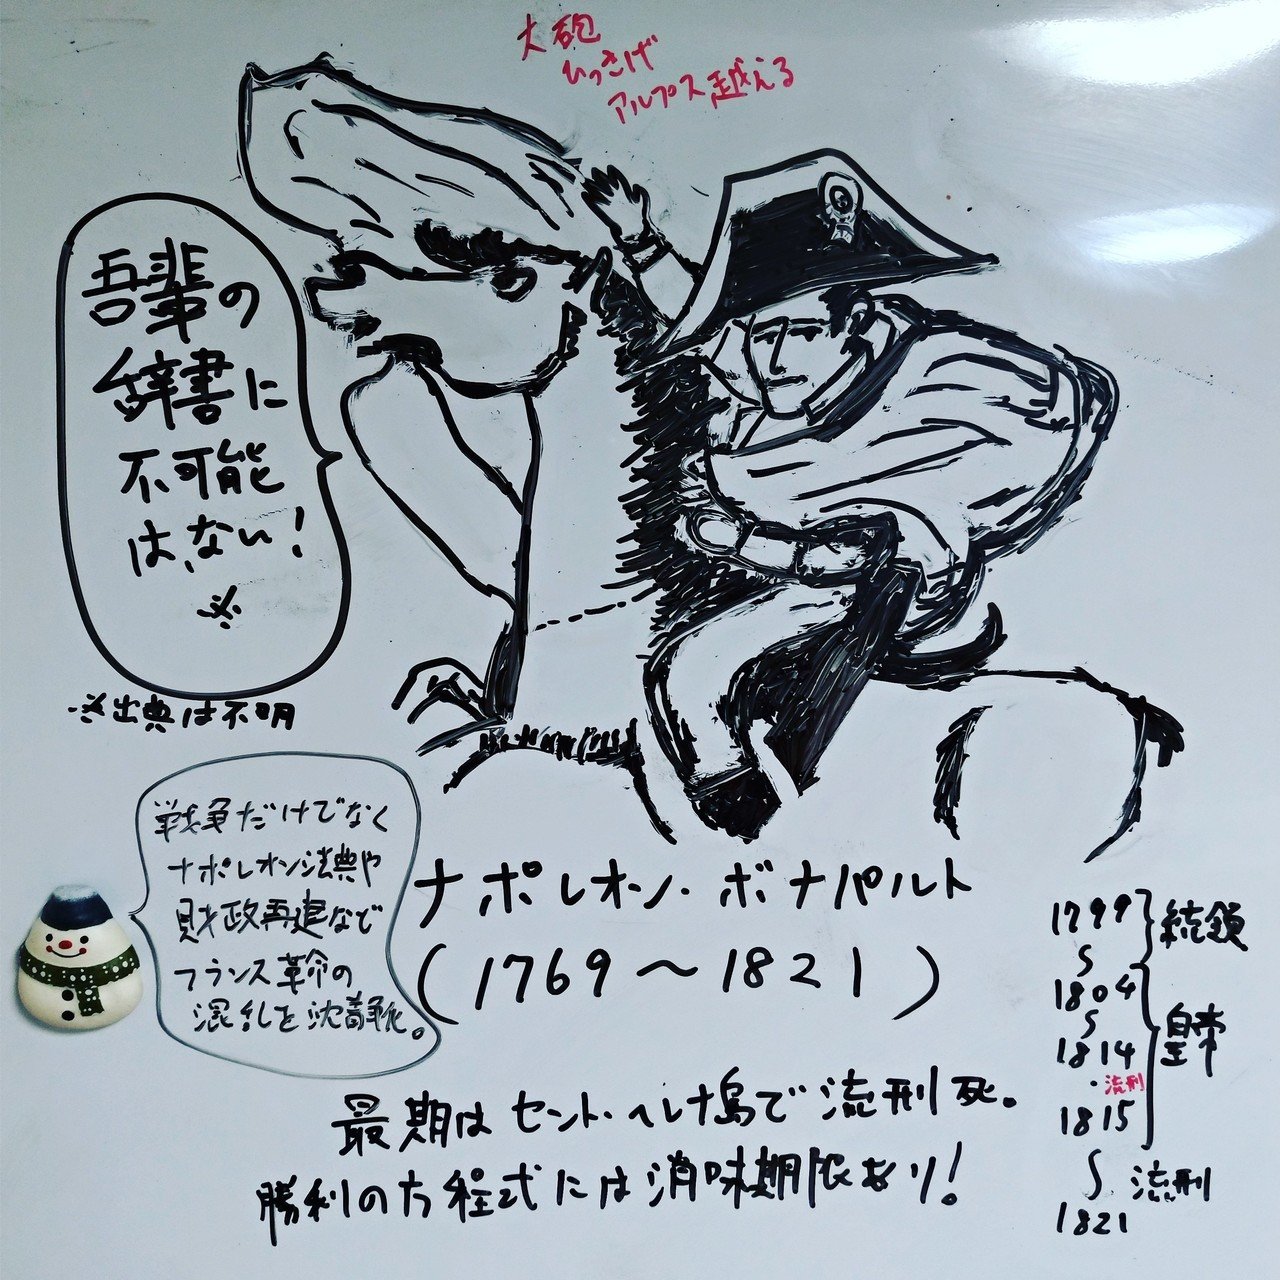 大砲
ひっさげ
アルプス越える
吾輩の
辞書に
不可能
は、ない!
※
※出典は不明
戦争だけでなく
ナポレオン法典や
財政再建など
フランス革命の
混乱を沈静化。
ナポレオン・ボナパルト
(1769〜1821)
1799
〜
1804
〜
1814
・流刑
1815
〜
1821
統領
皇帝
流刑
最期はセント・ヘレナ島で流刑死。
勝利の方程式には消味期限あり!